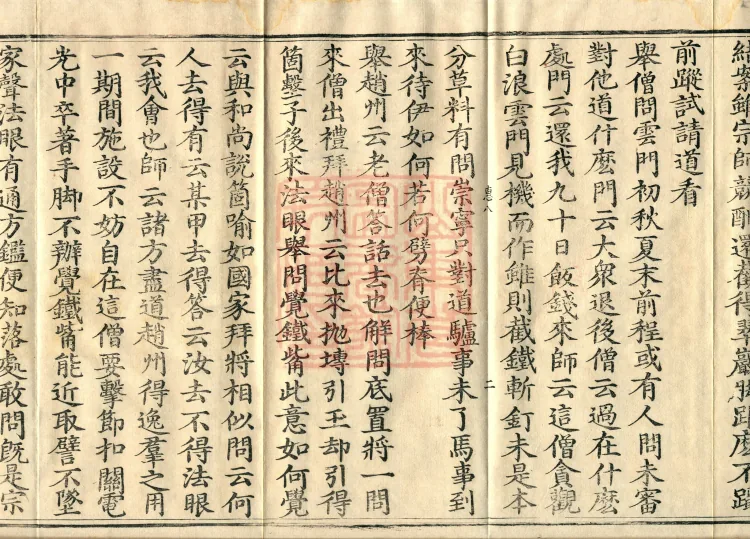 宗師競酬還截得
前蹤試請道看
舉僧問雲門初秋夏末前程或有人問未審
對他道什麼門云大衆退後僧云過在什麼
處門云還我九十日飯錢來師云這僧貪觀
白浪雲門見機而作雖則截鐵斬釘未是本
惠八 二
分草料有問崇寧只對道驢事未了馬事到
來待伊如何若何劈脊便棒
舉趙州云老僧答話去也解問底置將一問
來僧出禮拜趙州云比來拋塼引玉却引得
箇墼子後來法眼舉問覺鐵觜此意如何覺
云與和尚說箇喻如國家拜將相似問云何
人去得有云某甲去得答云汝去不得法眼
云我會也師云諸方盡道趙州得逸羣之用
一期間施設不妨自在這僧要擊節扣關電
光中卒著手脚不辦覺鐵觜能近取譬不墜
家聲法眼有通方鑑便知落處敢問旣是宗